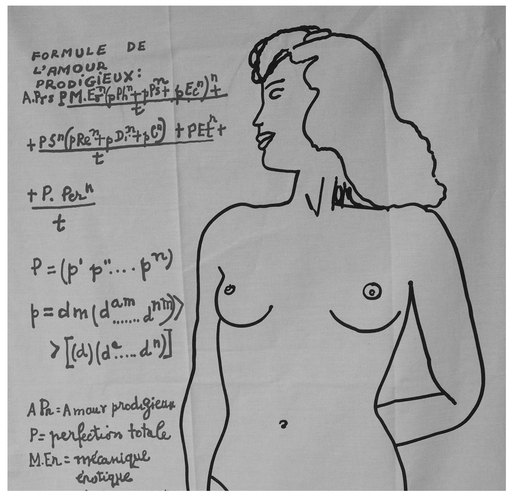 FORMULE DE
L'AMOUR
PRODIGIEUX:
A.Pr= P M.Er(pPhⁿ+pPsⁿ+pEcⁿ)+
t
+PSⁿ(pReⁿ+pDiⁿ+pCⁿ)+PEtⁿ+
t
+P. Perⁿ
t
P=(p' p''.... pⁿ)
p=dm(dᵃᵐ.......dⁿᵐ)>
>[(d)(dᵃ.....dⁿ)]
A Pr.=Amour prodigieux
P=perfection totale
M.Er=mécanique
érotique